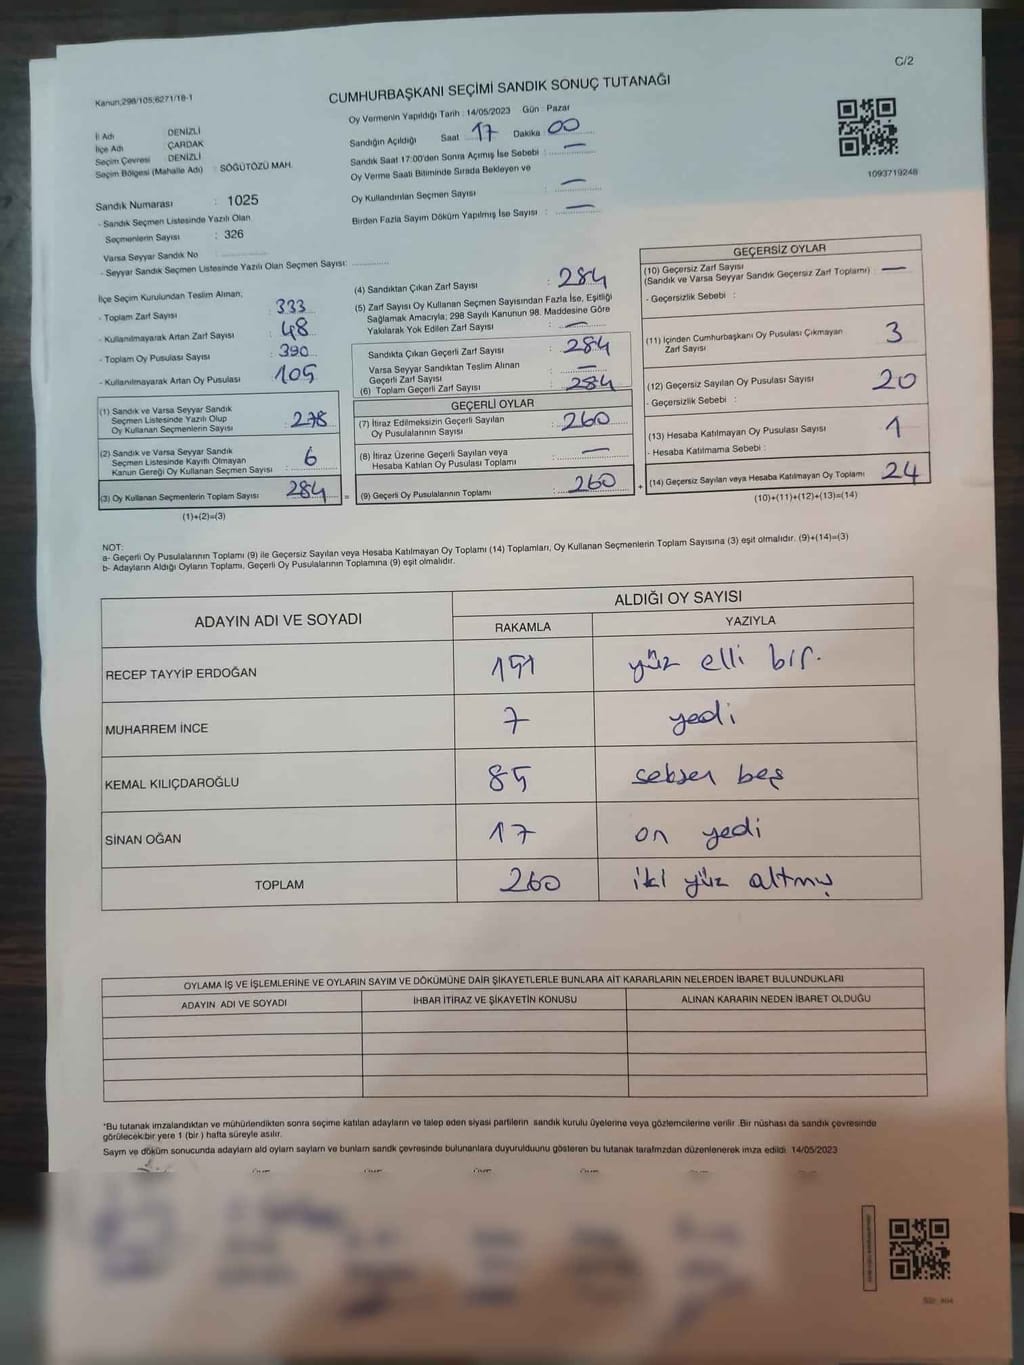 C/2
Kanun,298/105;6271/18-1
CUMHURBAŞKANI SEÇİMİ SANDIK SONUÇ TUTANAĞI
Oy Vermenin Yapıldığı Tarih : 14/05/2023 Gün : Pazar
İl Adı DENİZLİ
İlçe Adı ÇARDAK
Seçim Çevresi DENİZLİ
Seçim Bölgesi (Mahalle Adı) : SÖĞÜTÖZÜ MAH.
Sandığın Açıldığı Saat 17 Dakika 00
Sandık Saat 17:00'den Sonra Açımış İse Sebebi : —
Oy Verme Saati Bitiminde Sırada Bekleyen ve
Oy Kullandırılan Seçmen Sayısı : —
Birden Fazla Sayım Döküm Yapılmış İse Sayısı : —
1093719248
Sandık Numarası : 1025
- Sandık Seçmen Listesinde Yazılı Olan
Seçmenlerin Sayısı : 326
Varsa Seyyar Sandık No
- Seyyar Sandık Seçmen Listesinde Yazılı Olan Seçmen Sayısı:
İlçe Seçim Kurulundan Teslim Alınan;
- Toplam Zarf Sayısı : 333
- Kullanılmayarak Artan Zarf Sayısı : 48
- Toplam Oy Pusulası Sayısı : 390
- Kullanılmayarak Artan Oy Pusulası 105
(1) Sandık ve Varsa Seyyar Sandık
Seçmen Listesinde Yazılı Olup
Oy Kullanan Seçmenlerin Sayısı : 278
(2) Sandık ve Varsa Seyyar Sandık
Seçmen Listesinde Kayıtlı Olmayan
Kanun Gereği Oy Kullanan Seçmen Sayısı : 6
(3) Oy Kullanan Seçmenlerin Toplam Sayısı : 284 =
(1)+(2)=(3)
(4) Sandıktan Çıkan Zarf Sayısı : 284
(5) Zarf Sayısı Oy Kullanan Seçmen Sayısından Fazla İse, Eşitliği
Sağlamak Amacıyla; 298 Sayılı Kanunun 98. Maddesine Göre
Yakılarak Yok Edilen Zarf Sayısı : —
Sandıkta Çıkan Geçerli Zarf Sayısı : 284
Varsa Seyyar Sandıktan Teslim Alınan
Geçerli Zarf Sayısı : —
(6) Toplam Geçerli Zarf Sayısı : 284
GEÇERLİ OYLAR
(7) İtiraz Edilmeksizin Geçerli Sayılan
Oy Pusulalarının Sayısı : 260
(8) İtiraz Üzerine Geçerli Sayılan veya
Hesaba Katılan Oy Pusulası Toplamı : —
(9) Geçerli Oy Pusulalarının Toplamı : 260 +
GEÇERSİZ OYLAR
(10) Geçersiz Zarf Sayısı
(Sandık ve Varsa Seyyar Sandık Geçersiz Zarf Toplamı) : —
- Geçersizlik Sebebi :
(11) İçinden Cumhurbaşkanı Oy Pusulası Çıkmayan
Zarf Sayısı 3
(12) Geçersiz Sayılan Oy Pusulası Sayısı 20
- Geçersizlik Sebebi :
(13) Hesaba Katılmayan Oy Pusulası Sayısı 1
- Hesaba Katılmama Sebebi :
(14) Geçersiz Sayılan veya Hesaba Katılmayan Oy Toplamı : 24
(10)+(11)+(12)+(13)=(14)
NOT:
a- Geçerli Oy Pusulalarının Toplamı (9) ile Geçersiz Sayılan veya Hesaba Katılmayan Oy Toplamı (14) Toplamları, Oy Kullanan Seçmenlerin Toplam Sayısına (3) eşit olmalıdır. (9)+(14)=(3)
b- Adayların Aldığı Oyların Toplamı, Geçerli Oy Pusulalarının Toplamına (9) eşit olmalıdır.
ADAYIN ADI VE SOYADI ALDIĞI OY SAYISI
RAKAMLA YAZIYLA
RECEP TAYYİP ERDOĞAN 151 yüz elli bir.
MUHARREM İNCE 7 yedi
KEMAL KILIÇDAROĞLU 85 seksen beş
SİNAN OĞAN 17 on yedi
TOPLAM 260 iki yüz altmış
OYLAMA İŞ VE İŞLEMLERİNE VE OYLARIN SAYIM VE DÖKÜMÜNE DAİR ŞİKAYETLERLE BUNLARA AİT KARARLARIN NELERDEN İBARET BULUNDUKLARI
ADAYIN ADI VE SOYADI İHBAR İTİRAZ VE ŞİKAYETİN KONUSU ALINAN KARARIN NEDEN İBARET OLDUĞU
*Bu tutanak imzalandıktan ve mühürlendikten sonra seçime katılan adayların ve talep eden siyasi partilerin sandık kurulu üyelerine veya gözlemcilerine verilir .Bir nüshası da sandık çevresinde
görülecek bir yere 1 (bir ) hafta süreyle asılır.
Sayım ve döküm sonucunda adayların ald oyların sayları ve bunların sandk çevresinde bulunanlara duyurulduunu gösteren bu tutanak tarafmzdan düzenlenerek imza edildi. 14/05/2023